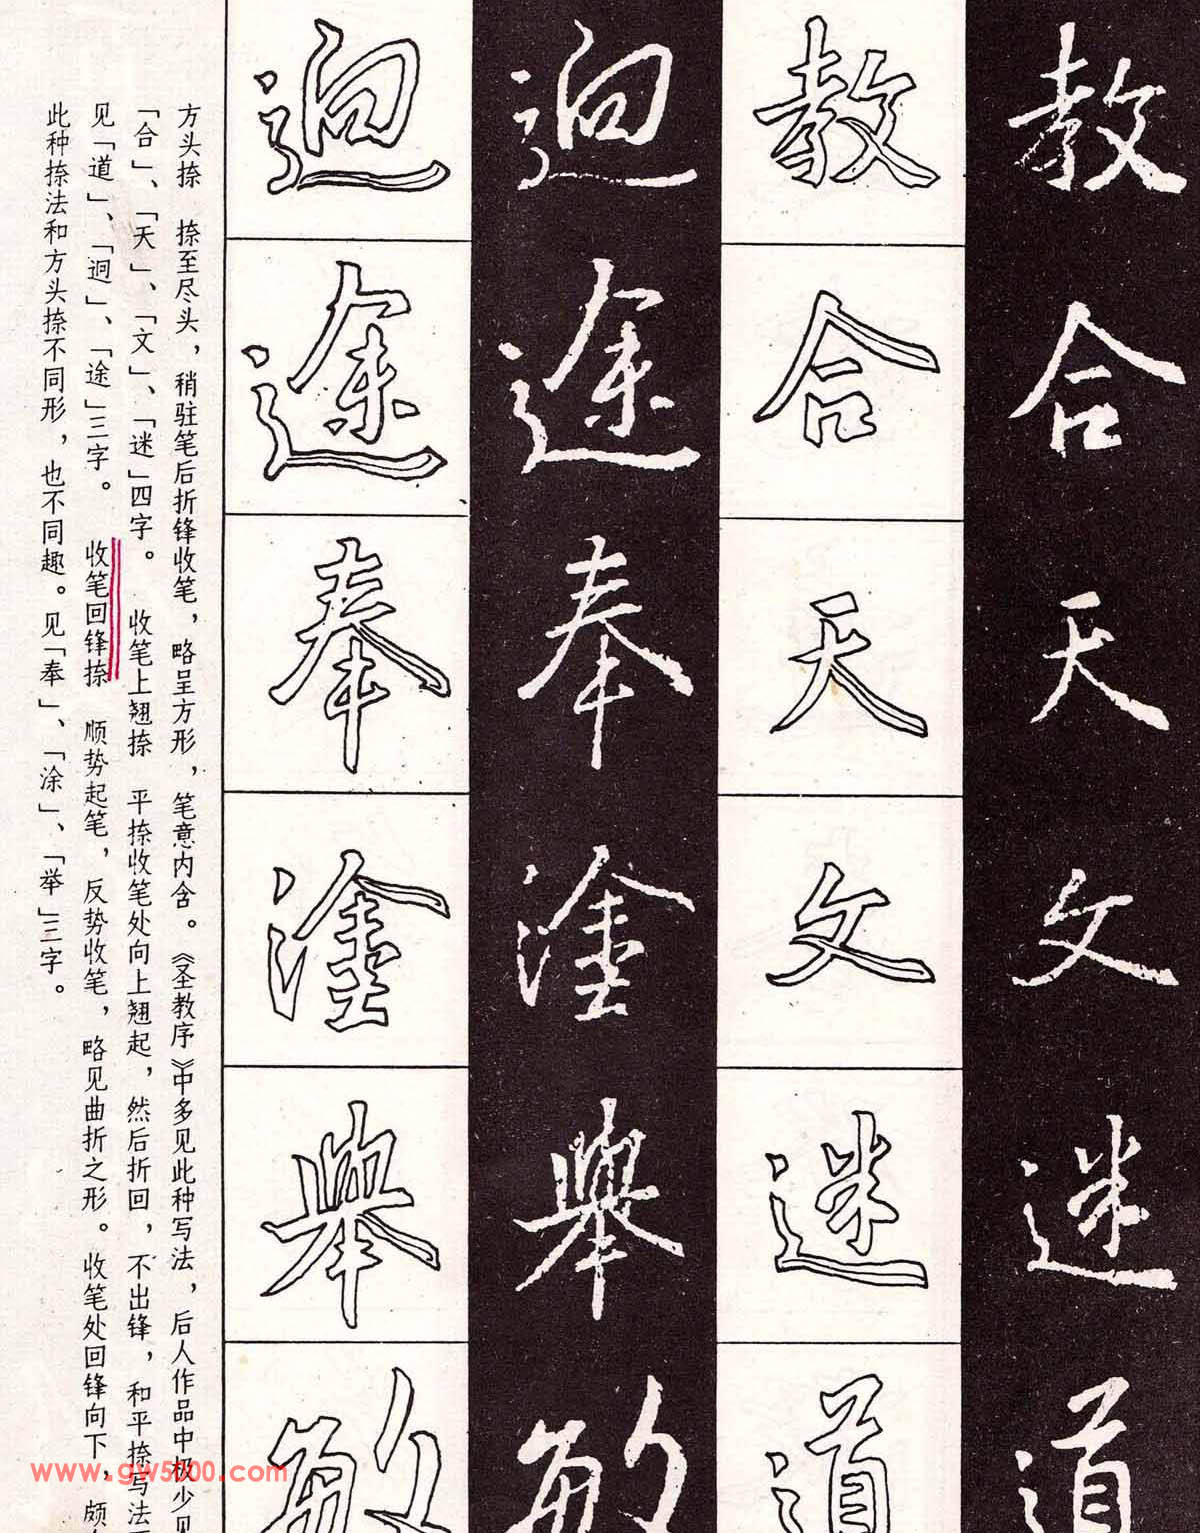 教
合
天
文
迷
道
教
合
天
文
迷
道
迥
途
奉
塗
舉
敏
迥
途
奉
塗
舉
敏
方头捺　捺至尽头，稍驻笔后折锋收笔，略呈方形，笔意内含。《圣教序》中多见此种写法，后人作品中极少见
「合」、「天」、「文」、「迷」四字。　收笔上翘捺　平捺收笔处向上翘起，然后折回，不出锋，和平捺写法
见「道」、「迥」、「途」三字。　收笔回锋捺　顺势起笔，反势收笔，略见曲折之形。收笔处回锋向下，颇
此种捺法和方头捺不同形，也不同趣。见「奉」、「涂」、「举」三字。
www.gw5000.com